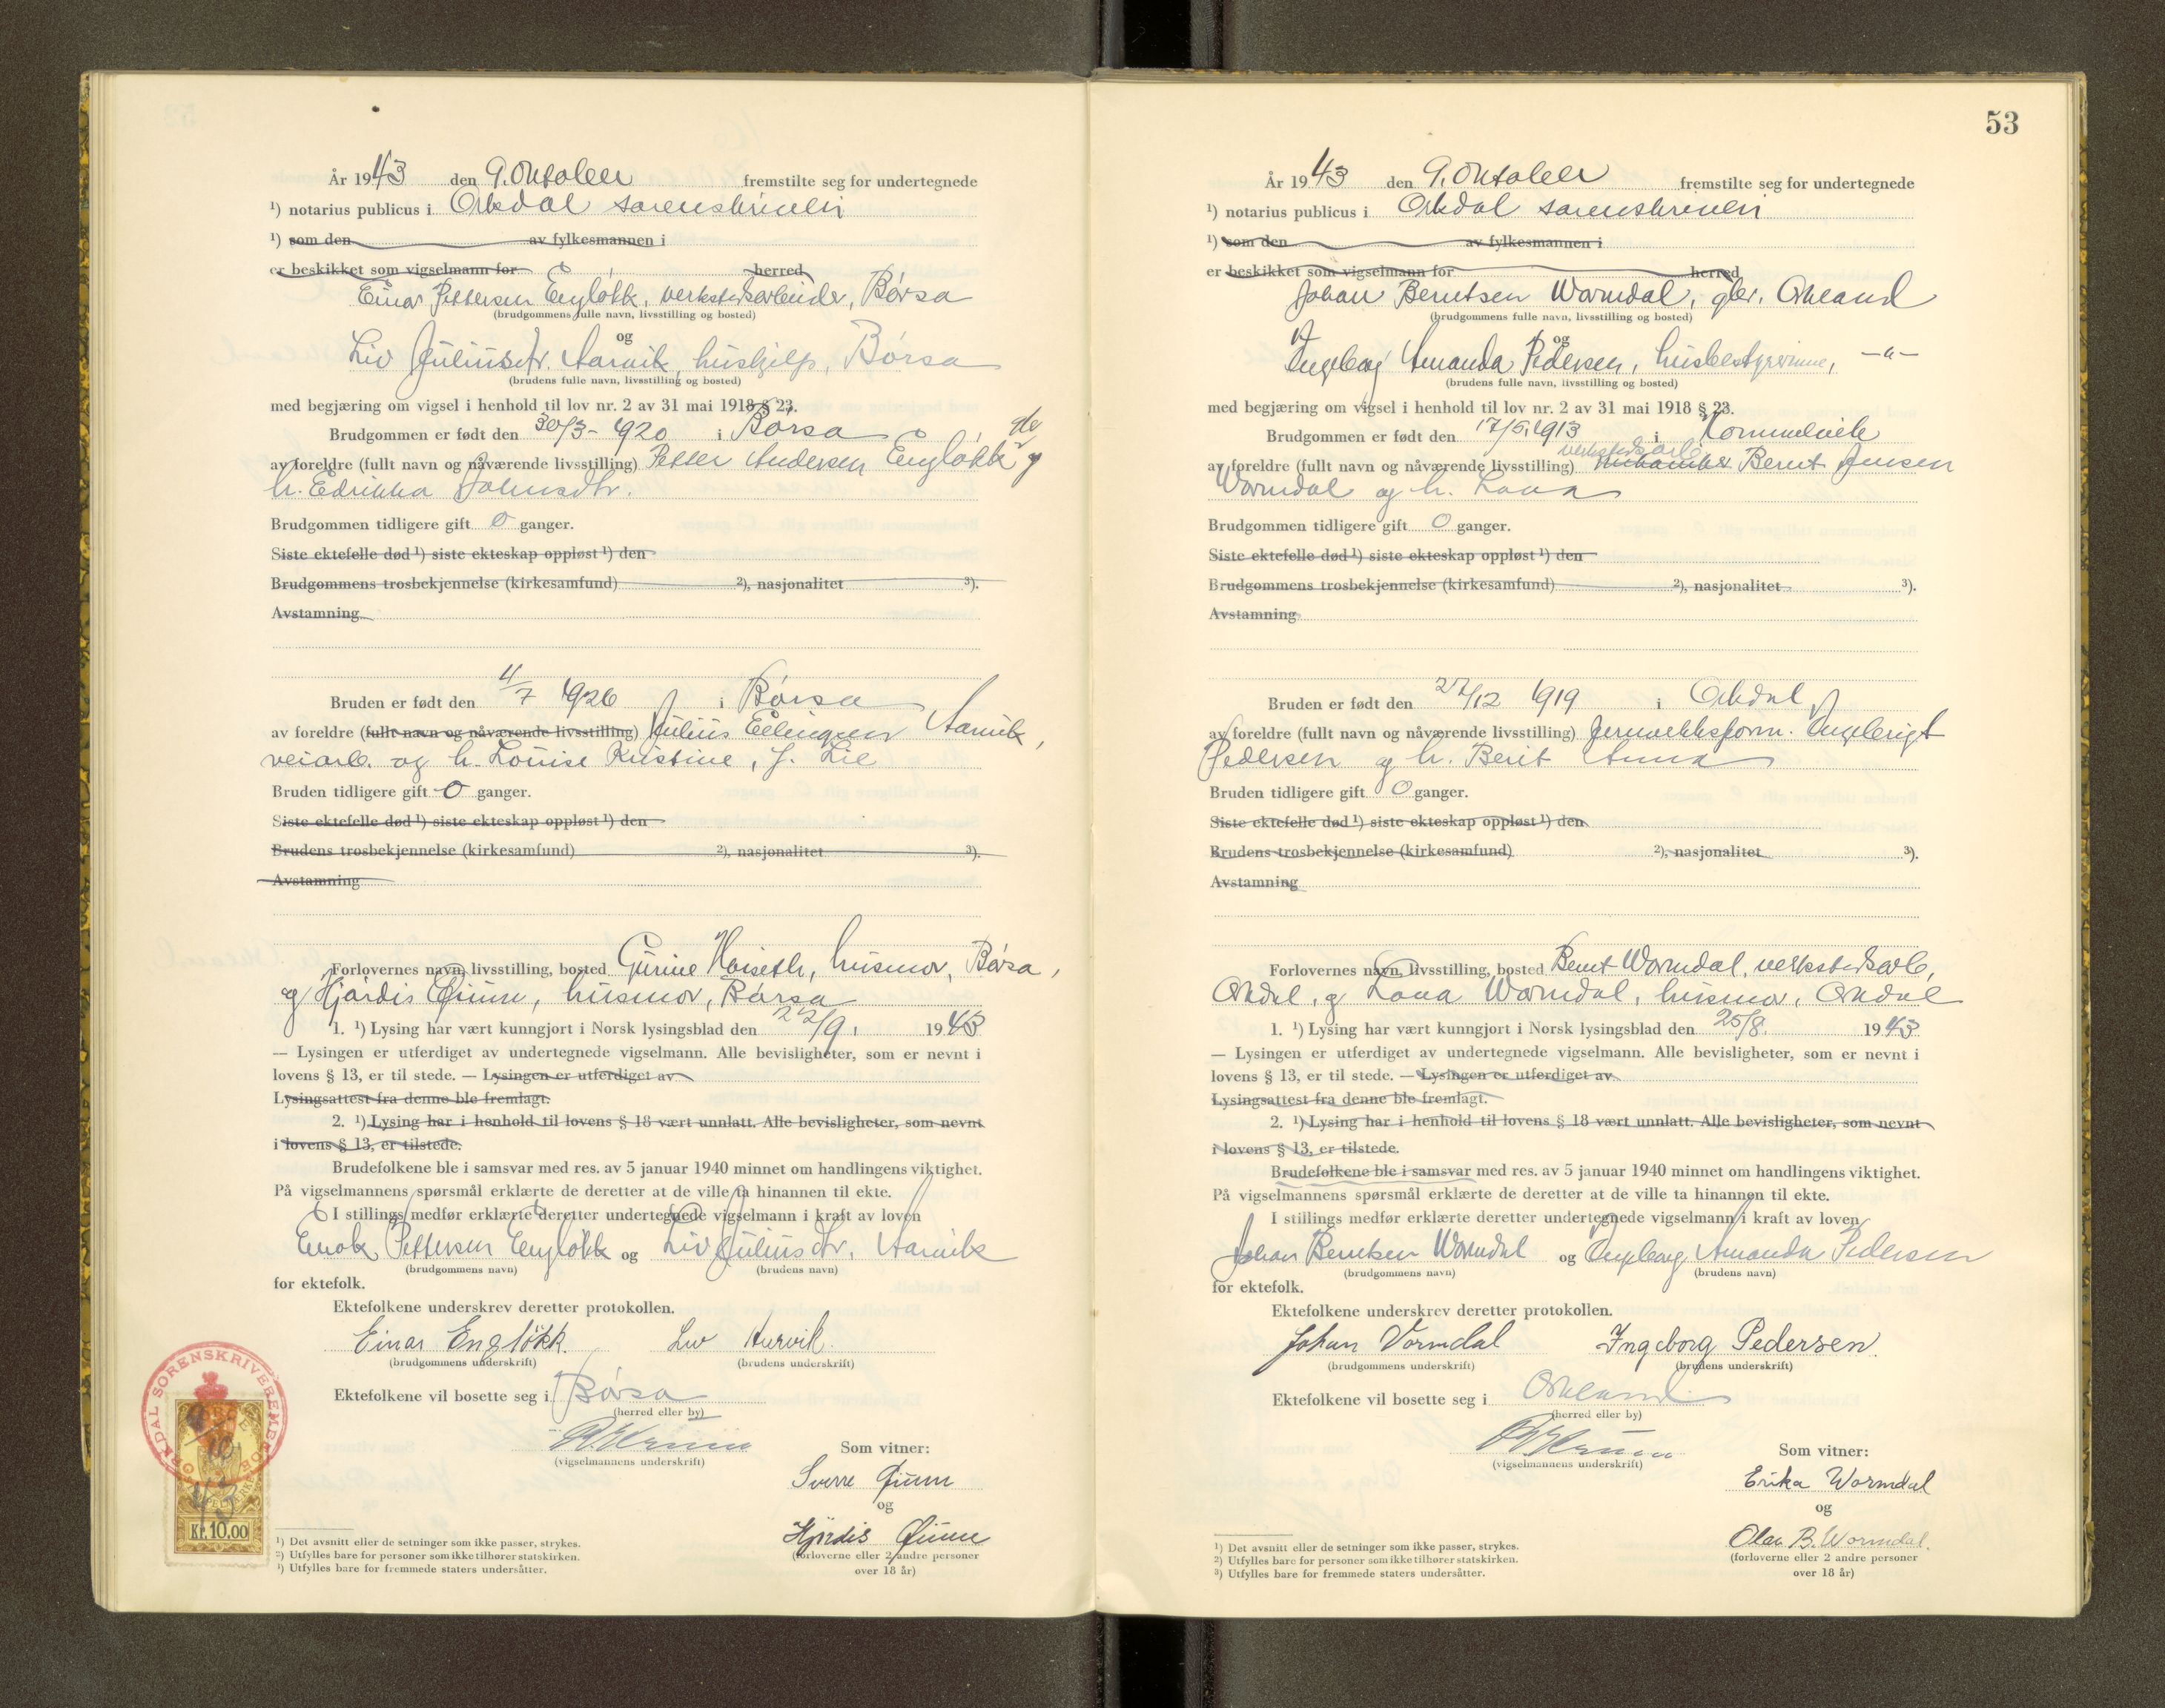 År 1943 den 9. Oktober fremstilte seg for undertegnede
¹) notarius publicus i Orkdal sorenskriveri
¹) som den av fylkesmannen i
er beskikket som vigselmann for herred
Einar Pettersen Engløkk, verkstedsarbeider, Børsa
(brudgommens fulle navn, livsstilling og bosted)
og
Liv Juliusdtr. Aarvik, hushjelp, Børsa
(brudens fulle navn, livsstilling og bosted)
med begjæring om vigsel i henhold til lov nr. 2 av 31 mai 1918 § 23.
Brudgommen er født den 30/3- 1920 i Børsa
av foreldre (fullt navn og nåværende livsstilling) Petter Andersen Engløkk og
h. Edrikka Johnsdtr.
Brudgommen tidligere gift 0 ganger.
Siste ektefelle død ¹) siste ekteskap oppløst ¹) den
Brudgommens trosbekjennelse (kirkesamfund) ²), nasjonalitet ³).
Avstamning
Bruden er født den 4/7 1926 i Børsa
av foreldre (fullt navn og nåværende livsstilling) Julius Ellingsen Aarvik,
veiarb. og h. Louise Kristine, f. Lie
Bruden tidligere gift 0 ganger.
Siste ektefelle død ¹) siste ekteskap oppløst ¹) den
Brudens trosbekjennelse (kirkesamfund) ²), nasjonalitet ³).
Avstamning
Forlovernes navn, livsstilling, bosted Gurine Høiseth, husmor, Børsa,
og Hjørdis Øium, husmor, Børsa
1. ¹) Lysing har vært kunngjort i Norsk lysingsblad den 22/9. 1943
— Lysingen er utferdiget av undertegnede vigselmann. Alle bevisligheter, som er nevnt i
lovens § 13, er til stede. — Lysingen er utferdiget av
Lysingsattest fra denne ble fremlagt.
2. ¹) Lysing har i henhold til lovens § 18 vært unnlatt. Alle bevisligheter, som nevnt
i lovens § 13, er tilstede.
Brudefolkene ble i samsvar med res. av 5 januar 1940 minnet om handlingens viktighet.
På vigselmannens spørsmål erklærte de deretter at de ville ta hinannen til ekte.
I stillings medfør erklærte deretter undertegnede vigselmann i kraft av loven
Pettersen Engløkk og Liv Juliusdtr. Aarvik
(brudgommens navn) (brudens navn)
for ektefolk.
Ektefolkene underskrev deretter protokollen.
Einar Engløkk. Liv Aarvik.
(brudgommens underskrift) (brudens underskrift)
Ektefolkene vil bosette seg i Børsa
(herred eller by)
(vigselmannens underskrift)
Som vitner:
Sverre Øium
og
Hjørdis Øium
(forloverne eller 2 andre personer
over 18 år)
ORKDAL SORENSKRIVEREMBEDE
9/10 43
Kr. 10.00
¹) Det avsnitt eller de setninger som ikke passer, strykes.
²) Utfylles bare for personer som ikke tilhører statskirken.
³) Utfylles bare for fremmede staters undersåtter.
53
År 1943 den 9. Oktober fremstilte seg for undertegnede
¹) notarius publicus i Orkdal sorenskriveri
¹) som den av fylkesmannen i
er beskikket som vigselmann for herred
Johan Berntsen Wormdal, gbr. Orkland
(brudgommens fulle navn, livsstilling og bosted)
og
Ingeborg Amanda Pedersen, husbestyrerinne, —"—
(brudens fulle navn, livsstilling og bosted)
med begjæring om vigsel i henhold til lov nr. 2 av 31 mai 1918 § 23.
Brudgommen er født den 17/5 1913 i
verkstedsarb.
av foreldre (fullt navn og nåværende livsstilling) Bernt Jensen
Wormdal og h. Lova
Brudgommen tidligere gift 0 ganger.
Siste ektefelle død ¹) siste ekteskap oppløst ¹) den
Brudgommens trosbekjennelse (kirkesamfund) ²), nasjonalitet ³).
Avstamning
Bruden er født den 27/12 1919 i Orkdal
av foreldre (fullt navn og nåværende livsstilling) Jernverksform. Ingebrigt
Pedersen og h. Berit Anna
Bruden tidligere gift 0 ganger.
Siste ektefelle død ¹) siste ekteskap oppløst ¹) den
Brudens trosbekjennelse (kirkesamfund) ²), nasjonalitet ³).
Avstamning
Forlovernes navn, livsstilling, bosted Bernt Wormdal, verkstedsarb,
Orkdal, og Lova Wormdal, husmor, Orkdal
1. ¹) Lysing har vært kunngjort i Norsk lysingsblad den 25/8. 1943
— Lysingen er utferdiget av undertegnede vigselmann. Alle bevisligheter, som er nevnt i
lovens § 13, er til stede. — Lysingen er utferdiget av
Lysingsattest fra denne ble fremlagt.
2. ¹) Lysing har i henhold til lovens § 18 vært unnlatt. Alle bevisligheter, som nevnt
i lovens § 13, er tilstede.
Brudefolkene ble i samsvar med res. av 5 januar 1940 minnet om handlingens viktighet.
På vigselmannens spørsmål erklærte de deretter at de ville ta hinannen til ekte.
I stillings medfør erklærte deretter undertegnede vigselmann i kraft av loven
Johan Berntsen Wormdal og Ingeborg Amanda Pedersen
(brudgommens navn) (brudens navn)
for ektefolk.
Ektefolkene underskrev deretter protokollen.
Johan Vormdal Ingeborg Pedersen.
(brudgommens underskrift) (brudens underskrift)
Ektefolkene vil bosette seg i Orkland
(herred eller by)
(vigselmannens underskrift)
Som vitner:
Erika Wormdal
og
Olav B. Wormdal.
(forloverne eller 2 andre personer
over 18 år)
¹) Det avsnitt eller de setninger som ikke passer, strykes.
²) Utfylles bare for personer som ikke tilhører statskirken.
³) Utfylles bare for fremmede staters undersåtter.